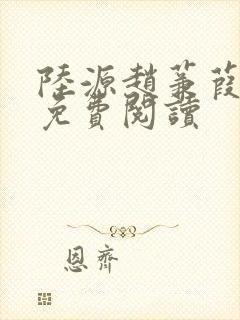 陸源趙蒹葭
免費閱讀
恩齊